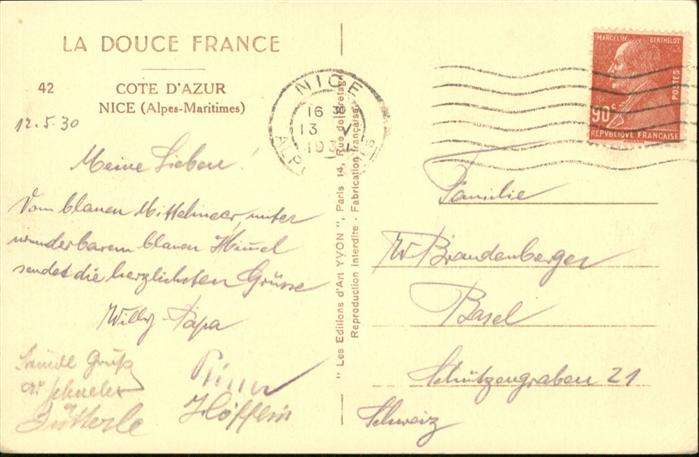 LA DOUCE FRANCE
42
COTE D'AZUR
NICE (Alpes-Maritimes)
12.5.30
Meine Lieben!
Vom blauen Mittelmeer unter
wunderbarem blauen Himmel
sendet die herzlichsten Grüsse
Willy-Papa
Gruß
Höfflin
" Les Editions d'Art YVON ", Paris 14,
Reproduction Interdite - Fabrication Française
NICE
16
13 V
MARCELIN BERTHELOT
POSTES
90c
REPVBLIQVE FRANÇAISE
Familie
W Brandenberger
Basel
Schützengraben 21
Schweiz